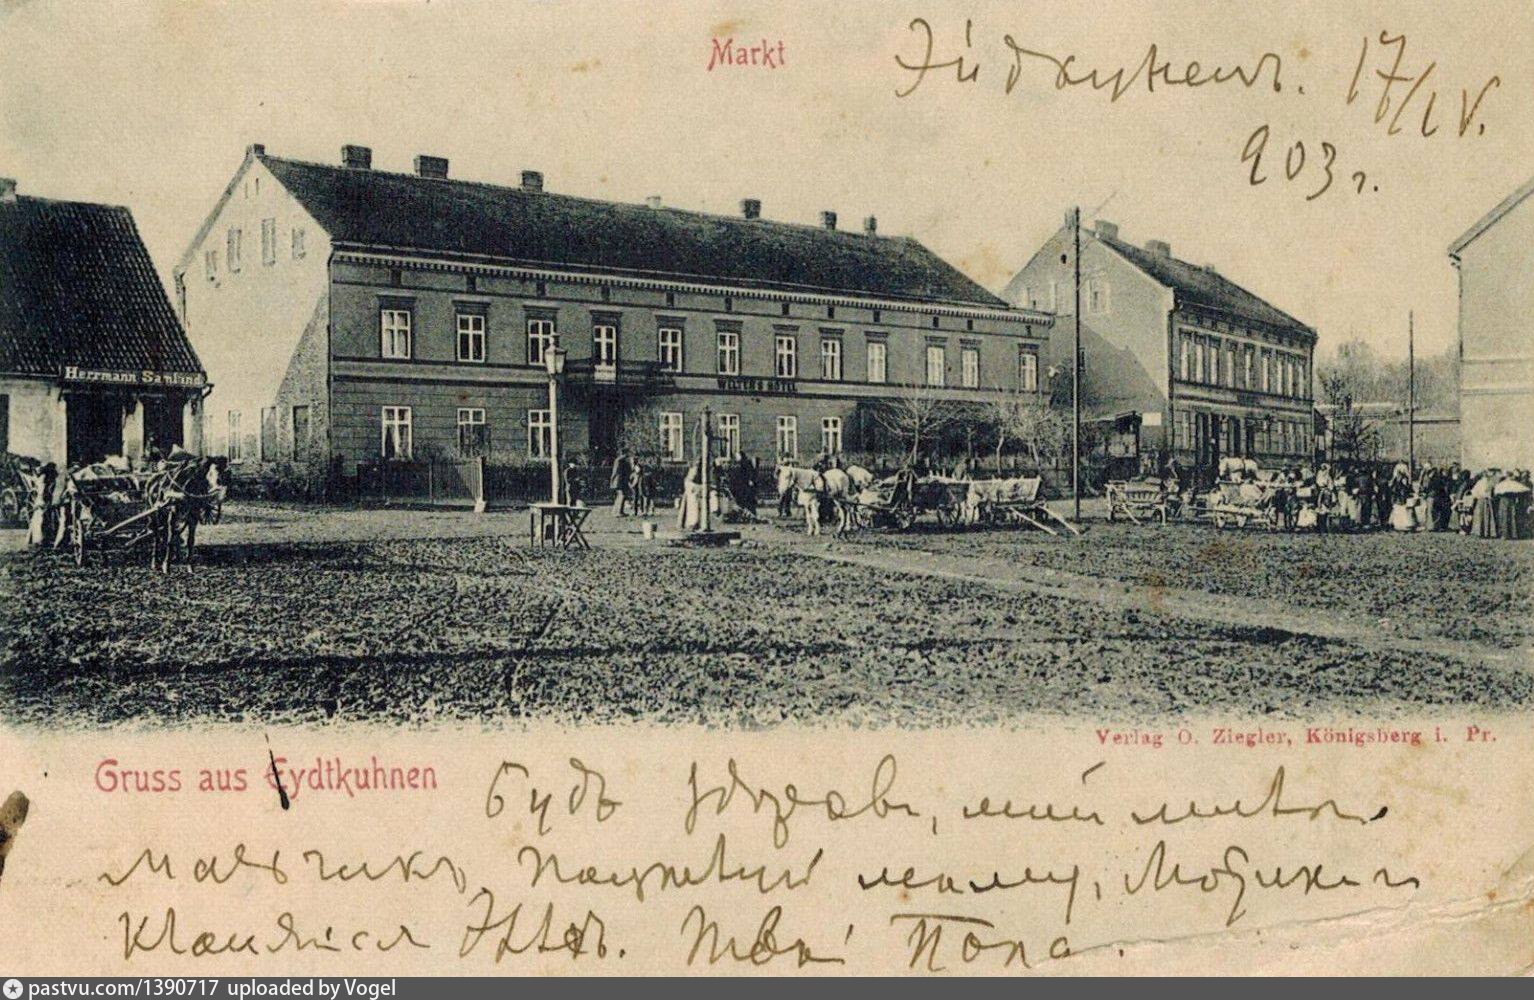 Markt
Эйдкуненъ. 17/IV.
903 г.
Herrmann
HOTEL
Verlag O. Ziegler, Königsberg i. Pr.
Gruss aus Eydtkuhnen
Будь здравъ, мой милый
мальчикъ. Поцѣлуй маму,
Твой Папа.
pastvu.com/1390717 uploaded by Vogel